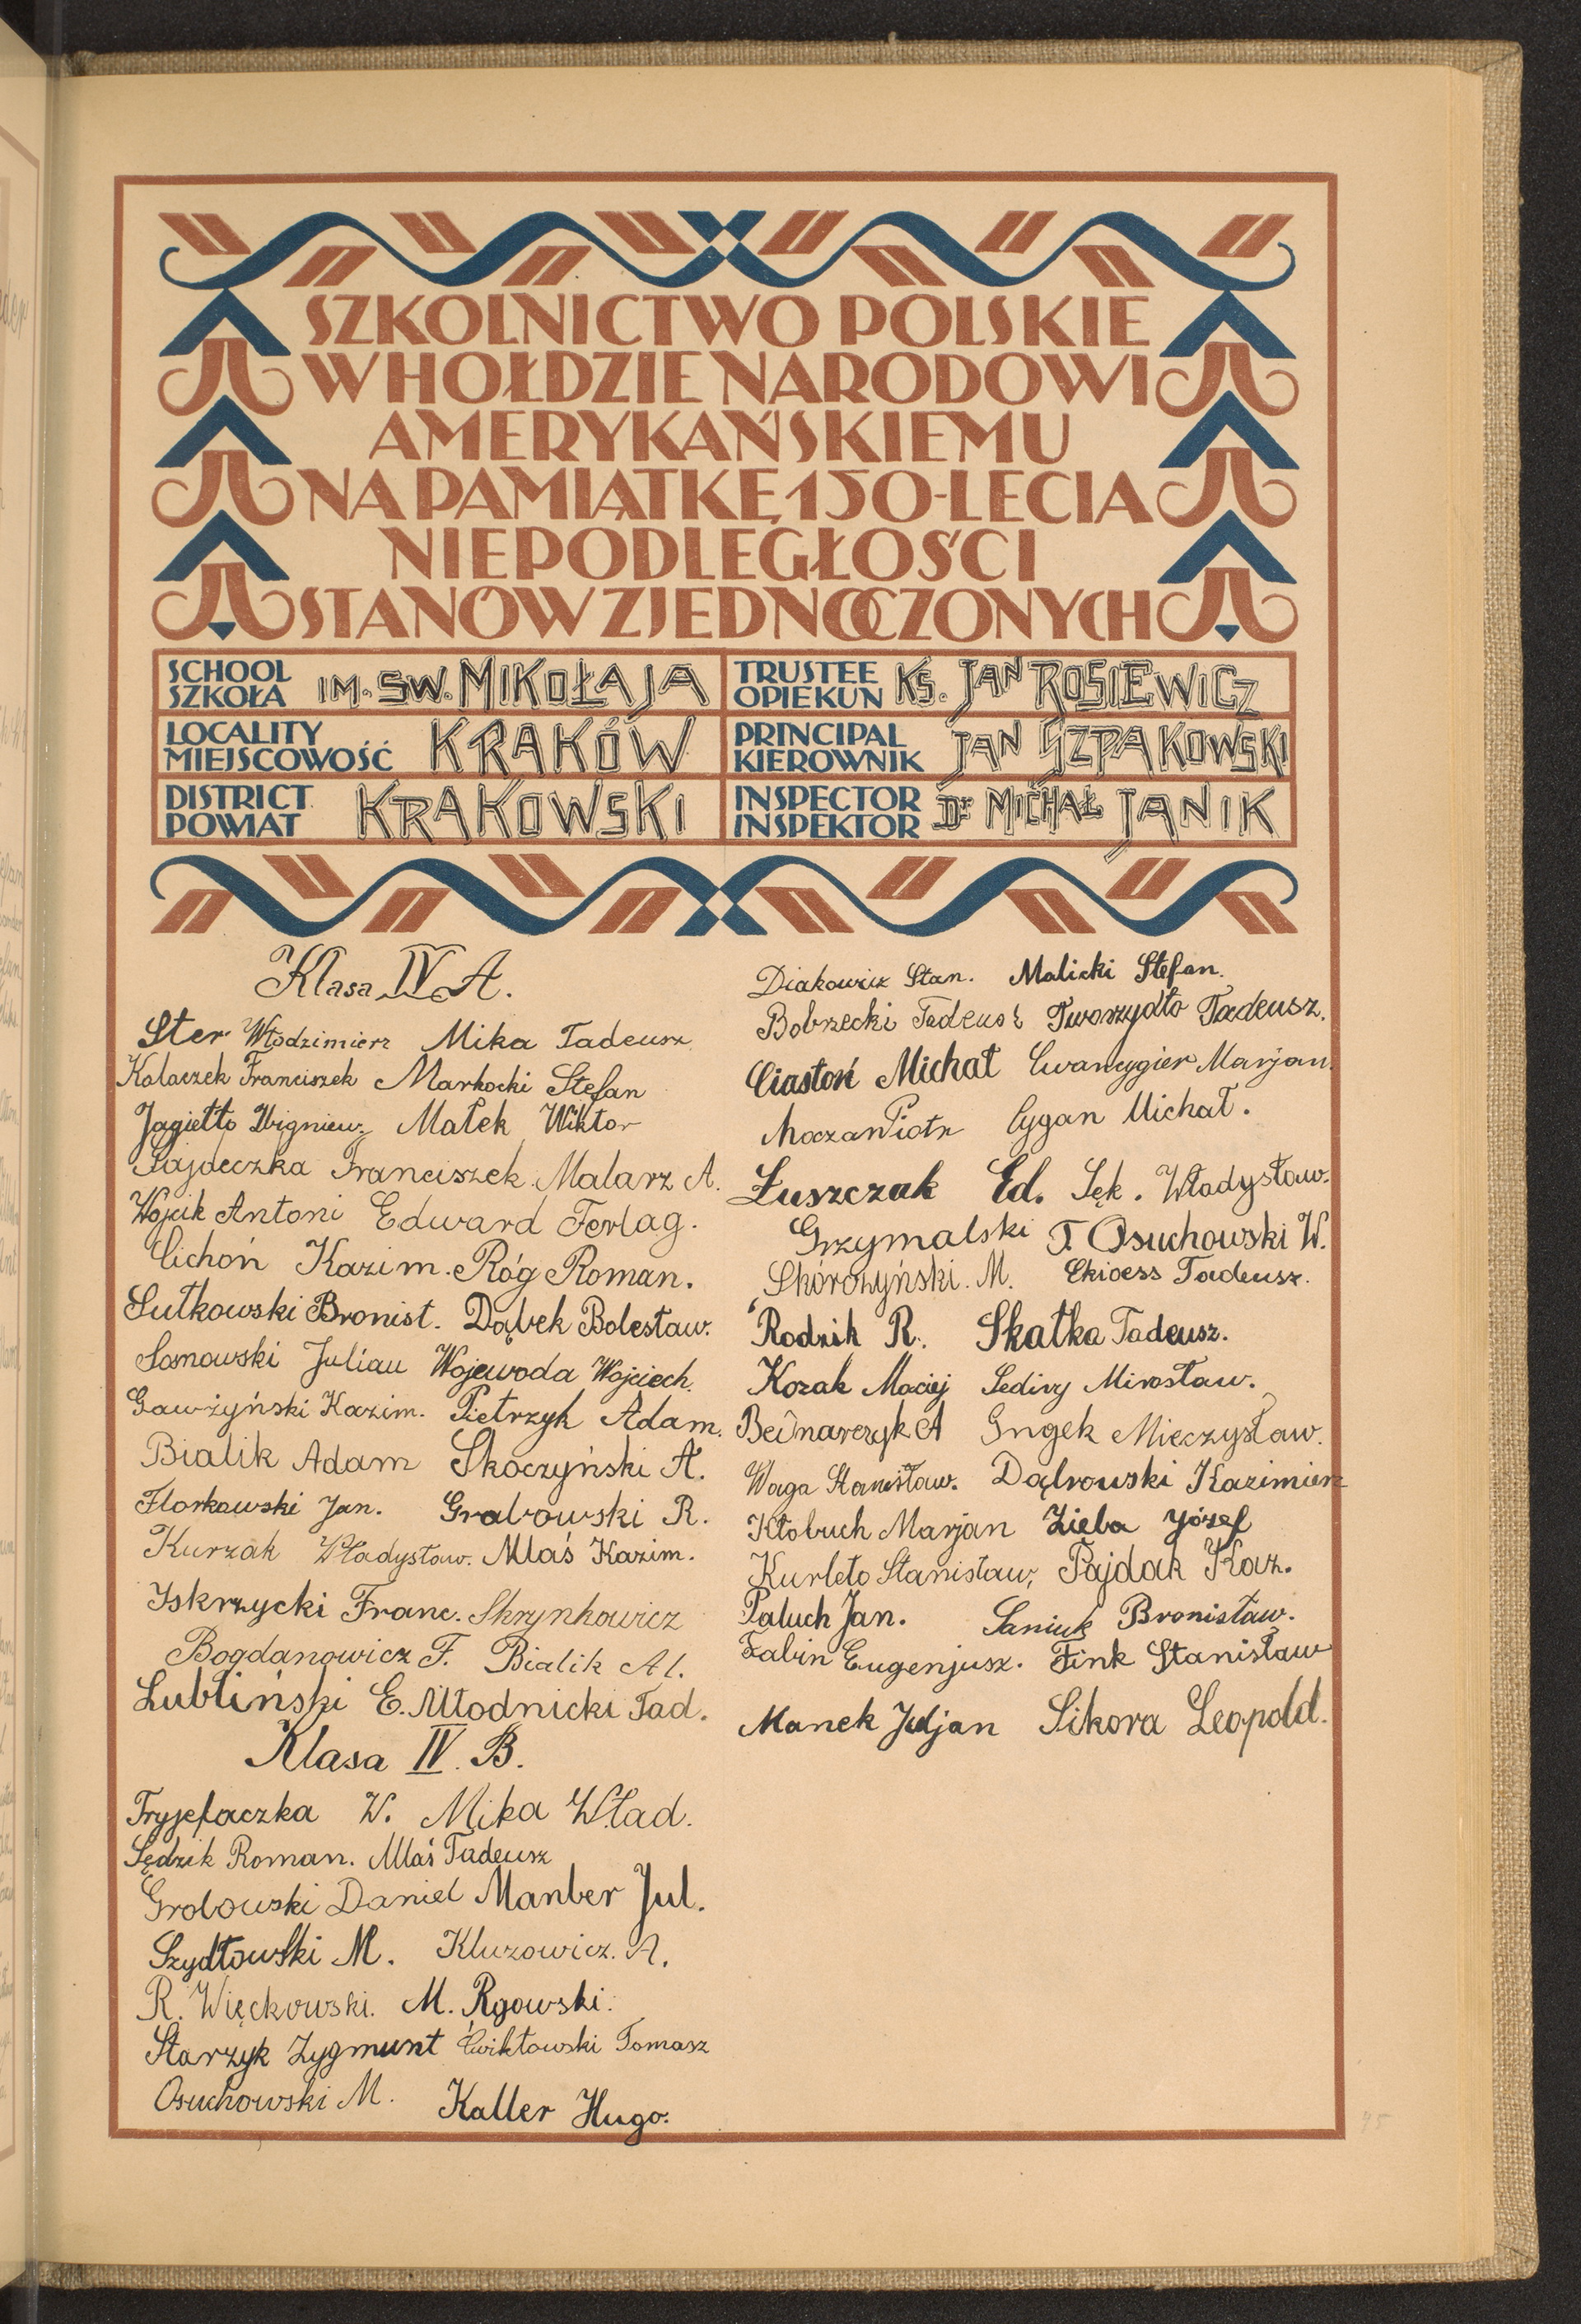 SZKOLNICTWO POLSKIE
W HOŁDZIE NARODOWI
AMERYKAŃSKIEMU
NA PAMIĄTKĘ 150-LECIA
NIEPODLEGŁOŚCI
STANÓW ZJEDNOCZONYCH
SCHOOL
SZKOŁA IM. ŚW. MIKOŁAJA
TRUSTEE
OPIEKUN KS. JAN ROSIEWICZ
LOCALITY
MIEJSCOWOŚĆ KRAKÓW
PRINCIPAL
KIEROWNIK JAN SZPAKOWSKI
DISTRICT
POWIAT KRAKOWSKI
INSPECTOR
INSPEKTOR Dr MICHAŁ JANIK
Klasa IV A.
Ster Włodzimierz Mika Tadeusz
Kołaczek Franciszek Markocki Stefan
Jagiełło Zbigniew Małek Wiktor
Pajdeczka Franciszek Malarz A.
Wójcik Antoni Edward Ferlag.
Cichoń Kazim. Róg Roman.
Sułkowski Bronisł. Dąbek Bolesław.
Sosnowski Julian Wojewoda Wojciech.
Gawżyński Kazim. Pietrzyk Adam.
Bialik Adam Skoczyński A.
Florkowski Jan. Grabowski R.
Kurzak Władysław. Maś Kazim.
Iskrzycki Franc. Skrzynkowicz
Bogdanowicz F. Bialik Al.
Lubliński E. Młodnicki Tad.
Klasa IV. B.
W. Mika Wład.
Sędzik Roman. Maś Tadeusz
Grobowski Daniel Manber Jul.
Szydłowski M. Kluzowicz. A.
R. Więckowski. M. Rgowski.
Starzyk Zygmunt Ćwikłowski Tomasz
Osuchowski M. Kaller Hugo.
Diakowicz Stan. Malicki Stefan.
Bobrzecki Tadeusz Tworzydło Tadeusz.
Ciastoń Michał Cwancygier Marjan.
Moczan Piotr Cygan Michał.
Łuszczak Ed. Sęk. Władysław.
Grzymalski T. Osuchowski W.
Skórczyński. M. Ekioess Tadeusz.
Rodzik R. Skałka Tadeusz.
Kozak Maciej Sedivy Mirosław.
Bednarczyk A Gngek Mieczysław.
Waga Stanisław. Dąbrowski Kazimierz
Kłobuch Marjan Zięba Józef
Kurleto Stanisław, Pajdak Kaz.
Paluch Jan. Saniuk Bronisław.
Fabin Eugenjusz. Fink Stanisław
Manek Juljan Sikora Leopold.